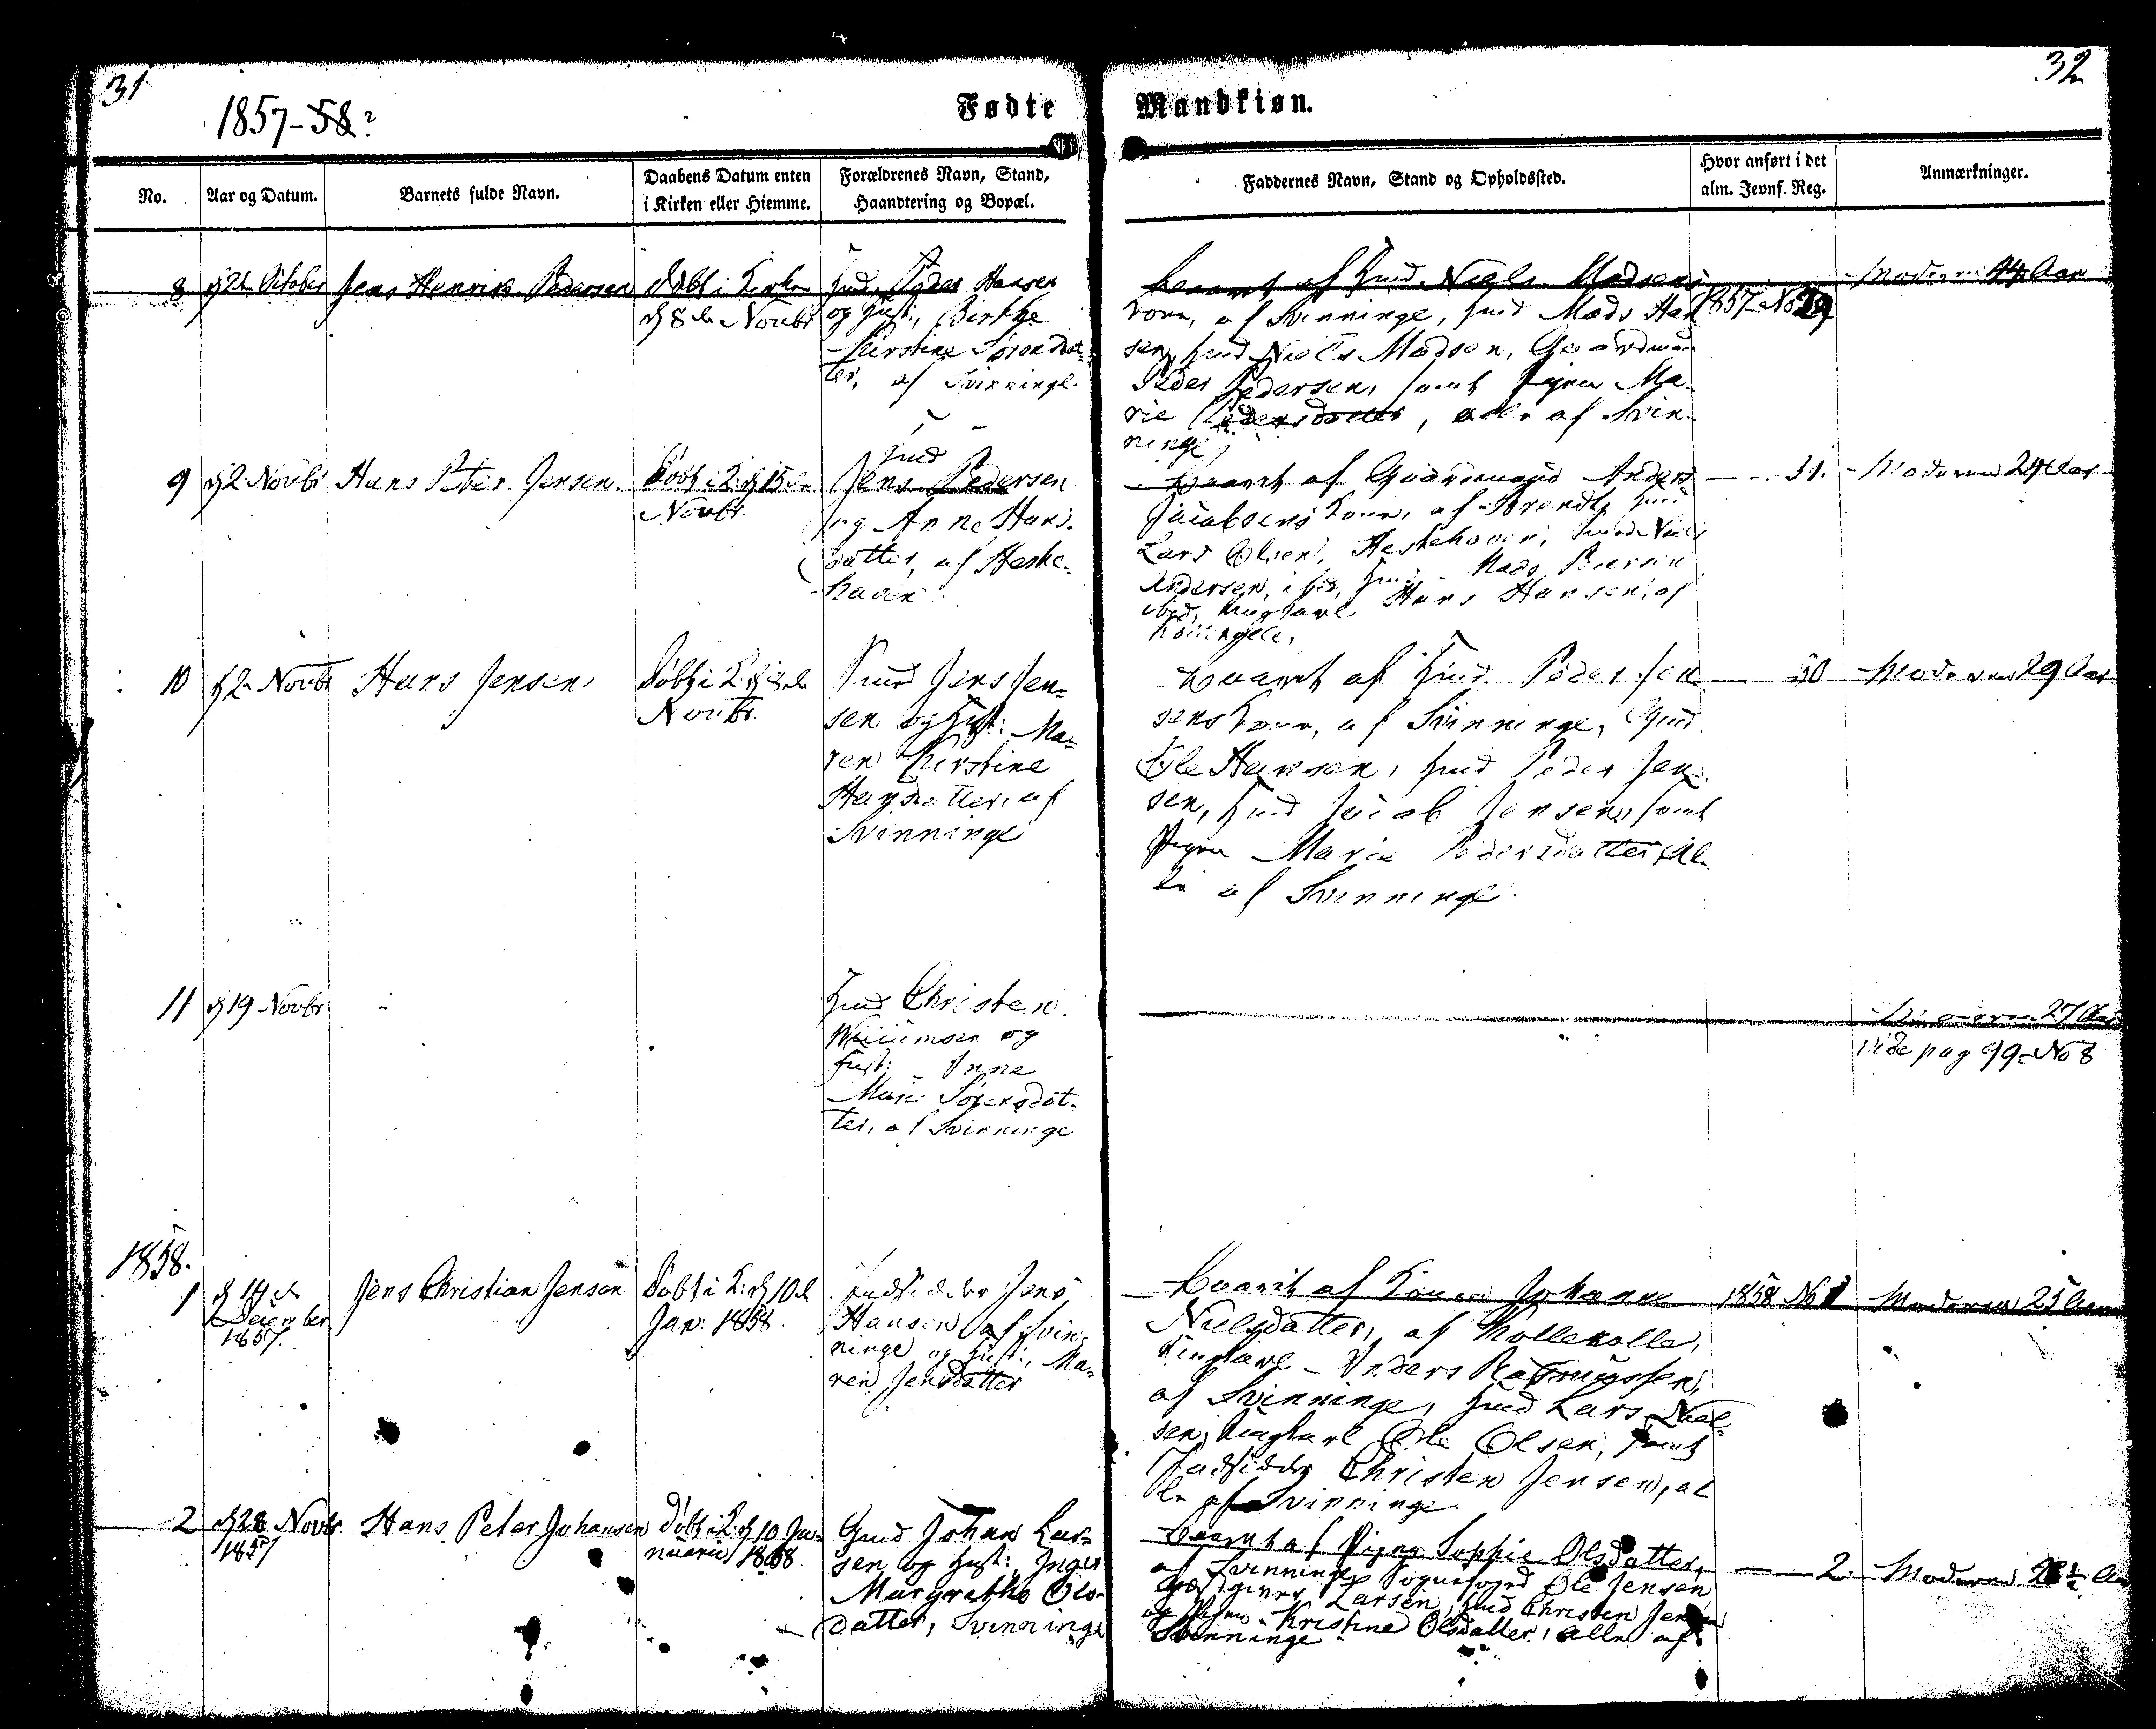 31
32
1857-58?
Fødte
Mandkiøn.
No.
Aar og Datum.
Barnets fulde Navn.
Daabens Datum enten
i Kirken eller Hiemme.
Forældrenes Navn, Stand,
Haandtering og Bopæl.
Faddernes Navn, Stand og Opholdssted.
Hvor anført i det
alm. Jevnf. Reg.
Anmærkninger.
8
October
Jens Henrik Pedersen
Døbt i Kirken
d 8de Novbr
Huusmd. Peder Hansen
og Hust: Birthe
Kirstine Sørensdat-
ter, af Svinninge.
baaret af Huusmd. Niels Madsens
Kone, af Svinninge, Huusmd Mads Han
sen, Huusmd Niels Madsen, Gaardmand
Peder Pedersen, samt Pigen Ma-
rie Pedersdatter, alle af Svin-
ninge
1857 No 29
Moderen 44 Aar
9
d 2 Novbr
Hans Peter Jensen
Døbt i K: d 15de
Novbr.
Huusmd
Jens Pedersen
og Anne Hans-
datter, af Heste-
haven
Baaret af Gaardmand Anders
Jacobsens Kone, af
Lars Olsen, Hestehaven, Niels
Andersen, ibid, Mads
ibid, Ungkarl Hans Hansen, af
31.
Moderen 24 Aar
10
d 2 Novbr
Hans Jensen
Døbt i K: d
Novbr.
Huusmd Jens Jen-
sen og Hust: Ma-
ren Kirstine
Hansdatter, af
Svinninge
baaret af Huusmd Peder Jen
sens Kone, af Svinninge, Gmd
Ole Hansen, Huusmd Peder Jen-
sen, Huusmd Jacob Jensen, samt
Pigen Marie Pedersdatter, al-
le af Svinninge
30
Moderen 29 Aar
11
d 19 Novbr
"
Huusmd Christen
og
Hust: Anne
Marie Sørensdat-
ter, af Svinninge
Moderen 27 Aar
vide pag 99 No 8
1858.
1
d 14de
December
1857.
Jens Christian Jensen
Døbt i K: d 10de
Jan: 1858.
Indsidder Jens
Hansen af Svin-
ninge og Hust: Ma-
ren Jensdatter
baaret af Konen Johanne
Nielsdatter, af Kollekolle,
Ungkarl Anders Rasmussen,
af Svinninge, Huusmd Lars Niel-
sen, Ungkarl Ole Olsen, samt
Indsidder Christen Jensen, al
le af Svinninge.
1858 No 1
Moderen 25 Aar
2
d 28 Novbr.
1857
Hans Peter Johansen
døbt i K: d 10 Ja-
nuarii 1858.
Gmd Johan Lar-
sen og Hust: Inger
Margrethe Ols-
datter, Svinninge
baaret af Pigen Sophie Olsdatter,
af Svinninge, Sognefoged Ole Jensen
Larsen, Huusmd Christen Jensen
og Pigen Kristine Olsdatter, alle af
Svinninge
2.
Moderen 28½ Aar